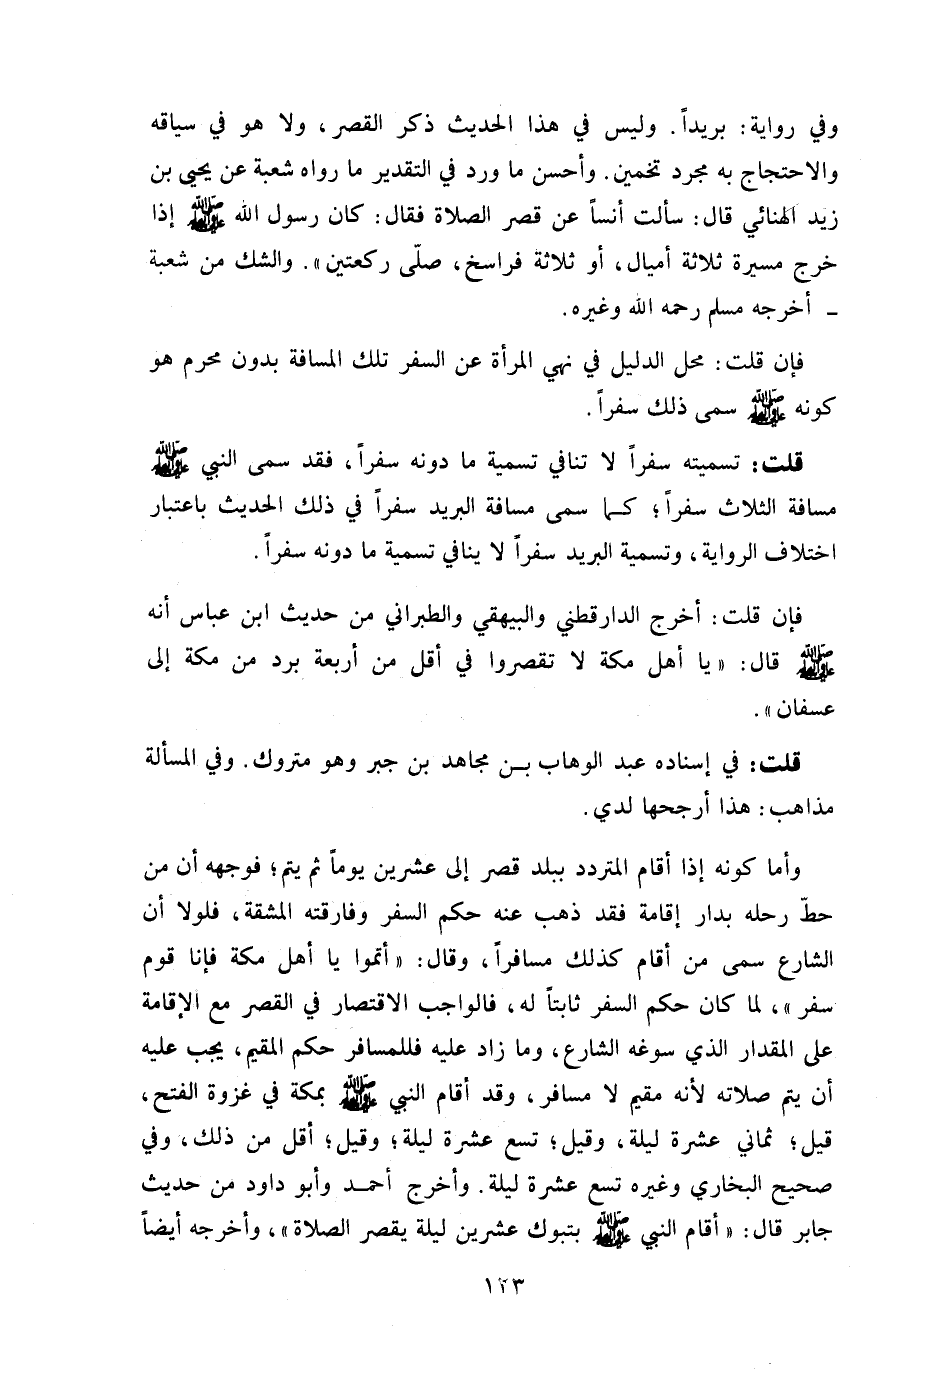 وفي رواية: بريداً. وليس في هذا الحديث ذكر القصر، ولا هو في سياقه
والاحتجاج به مجرد تخمين. وأحسن ما ورد في التقدير ما رواه شعبة عن يحيى بن
زيد الهنائي قال: سألت أنساً عن قصر الصلاة فقال: كان رسول الله ﷺ إذا
خرج مسيرة ثلاثة أميال، أو ثلاثة فراسخ، صلّى ركعتين». والشك من شعبة
ـ أخرجه مسلم رحمه الله وغيره.
فإن قلت: محل الدليل في نهي المرأة عن السفر تلك المسافة بدون محرم هو
كونه ﷺ سمى ذلك سفراً.
قلت: تسميته سفراً لا تنافي تسمية ما دونه سفراً، فقد سمى النبي ﷺ
مسافة الثلاث سفراً؛ كما سمى مسافة البريد سفراً في ذلك الحديث باعتبار
اختلاف الرواية، وتسمية البريد سفراً لا ينافي تسمية ما دونه سفراً.
فإن قلت: أخرج الدارقطني والبيهقي والطبراني من حديث ابن عباس أنه
ﷺ قال: «يا أهل مكة لا تقصروا في أقل من أربعة برد من مكة إلى
عسفان».
قلت: في إسناده عبد الوهاب بن مجاهد بن جبر وهو متروك. وفي المسألة
مذاهب: هذا أرجحها لدي.
وأما كونه إذا أقام المتردد ببلد قصر إلى عشرين يوماً ثم يتم؛ فوجهه أن من
حطّ رحله بدار إقامة فقد ذهب عنه حكم السفر وفارقته المشقة، فلولا أن
الشارع سمى من أقام كذلك مسافراً، وقال: «أتموا يا أهل مكة فإنا قوم
سفر»، لما كان حكم السفر ثابتاً له، فالواجب الاقتصار في القصر مع الإقامة
على المقدار الذي سوغه الشارع، وما زاد عليه فللمسافر حكم المقيم، يجب عليه
أن يتم صلاته لأنه مقيم لا مسافر، وقد أقام النبي ﷺ بمكة في غزوة الفتح،
قيل؛ ثماني عشرة ليلة، وقيل؛ تسع عشرة ليلة؛ وقيل؛ أقل من ذلك، وفي
صحيح البخاري وغيره تسع عشرة ليلة. وأخرج أحمد وأبو داود من حديث
جابر قال: «أقام النبي ﷺ بتبوك عشرين ليلة يقصر الصلاة»، وأخرجه أيضاً
١٢٣